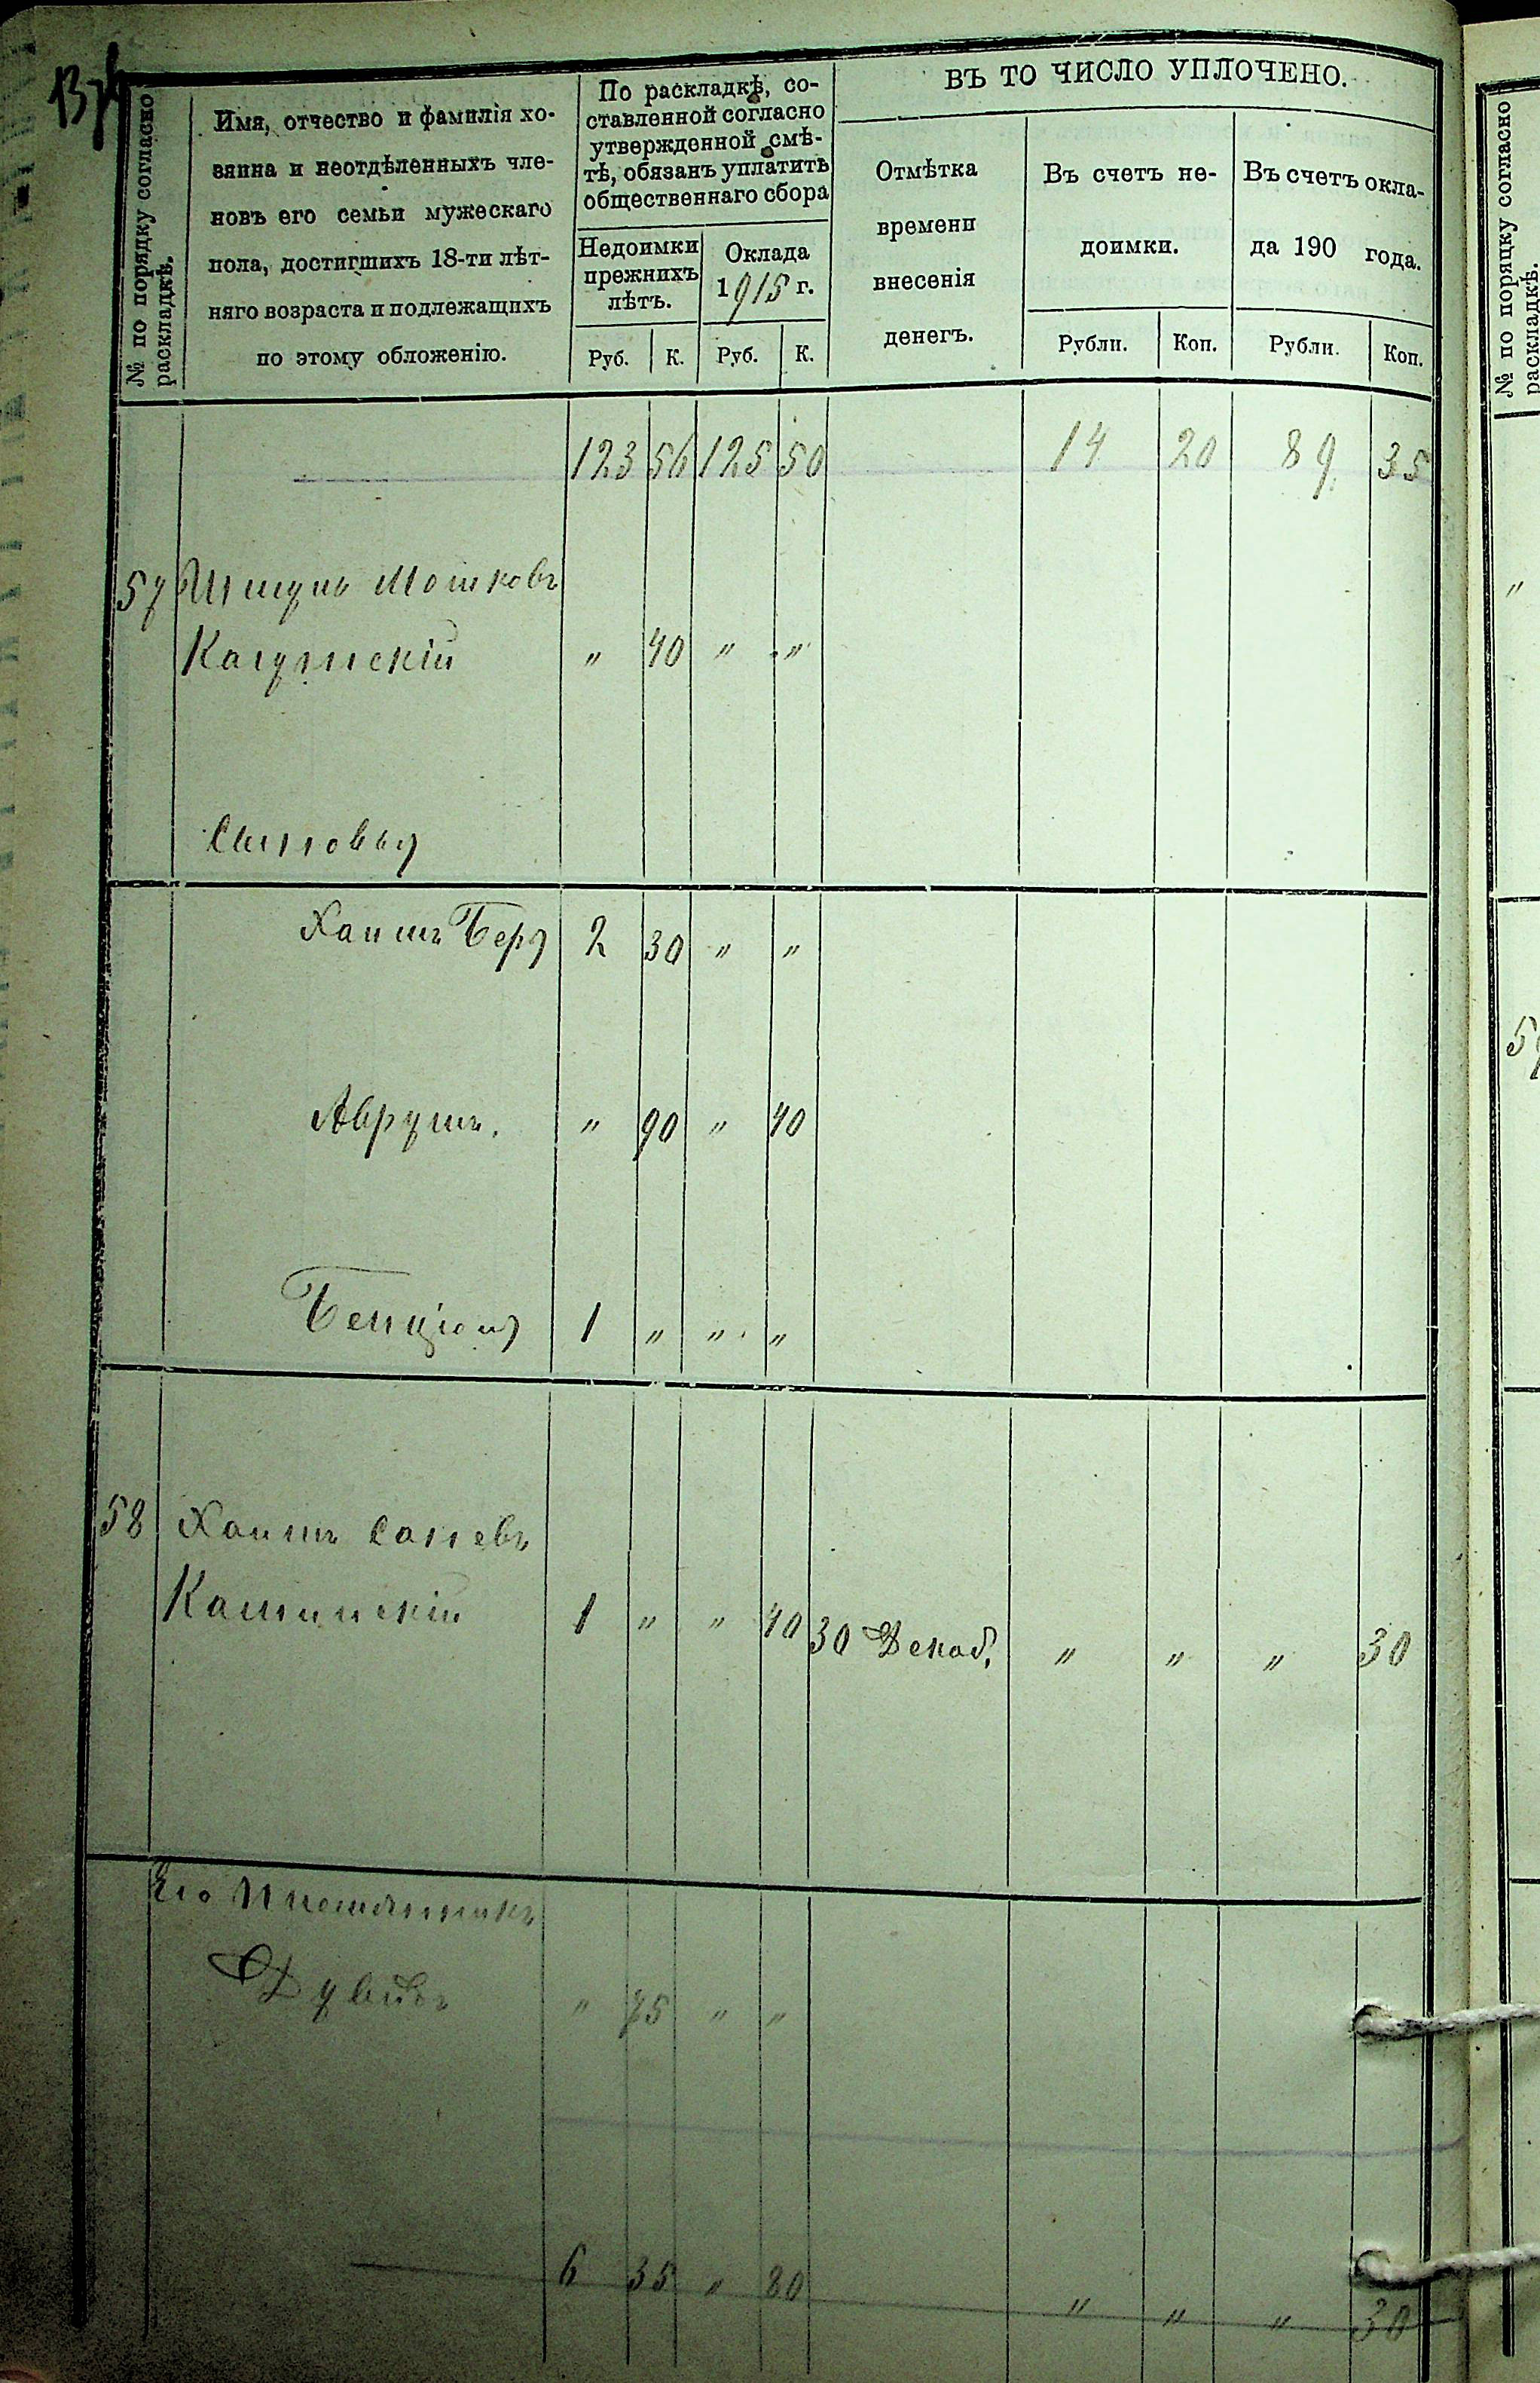 ВЪ ТО ЧИСЛО УПЛОЧЕНО.
№ по порядку согласно раскладкѣ.
Имя, отчество и фамилія хо-
зяина и неотдѣленныхъ чле-
новъ его семьи мужескаго
пола, достигшихъ 18-ти лѣт-
няго возраста и подлежащихъ
по этому обложенію.
По раскладкѣ, со-
ставленной согласно
утвержденной смѣ-
тѣ, обязанъ уплатить
общественнаго сбора
Недоимки
прежнихъ
лѣтъ.
Оклада
1915 г.
Руб. К. Руб. К.
Отмѣтка
времени
внесенія
денегъ.
Въ счетъ не-
доимки.
Рубли. Коп.
Въ счетъ окла-
да 190 года.
Рубли. Коп.
123 56 125 50 14 20 89 35
57 Мошковъ
" 40 " "
Сыновья
Хаимъ Беръ 2 30 " "
Аврумъ. " 90 " 40
Бенціонъ 1 " " "
58 Хаимъ
Камински 1 " " 40 30 Декаб. " " " 30
Его Племянникъ
Дувидъ " 75 " "
6 35 " 80 " " " 30
№ по порядку согласно раскладкѣ.
"